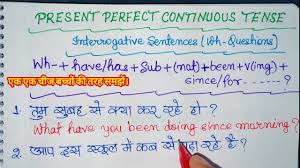 PRESENT PERFECT CONTINUOUS TENSE
Interrogative Sentences (Wh-Questions)
Wh-+ have/has + Sub + (not) + been + v(ing) +
since/for - - - - - - - ?
एक एक चीज बच्चों की तरह समझें।
1. तुम सुबह से क्या कर रहे हो ?
What have you been doing since morning?
2. आप इस स्कूल में कब से पढ़ा रहे हैं ?